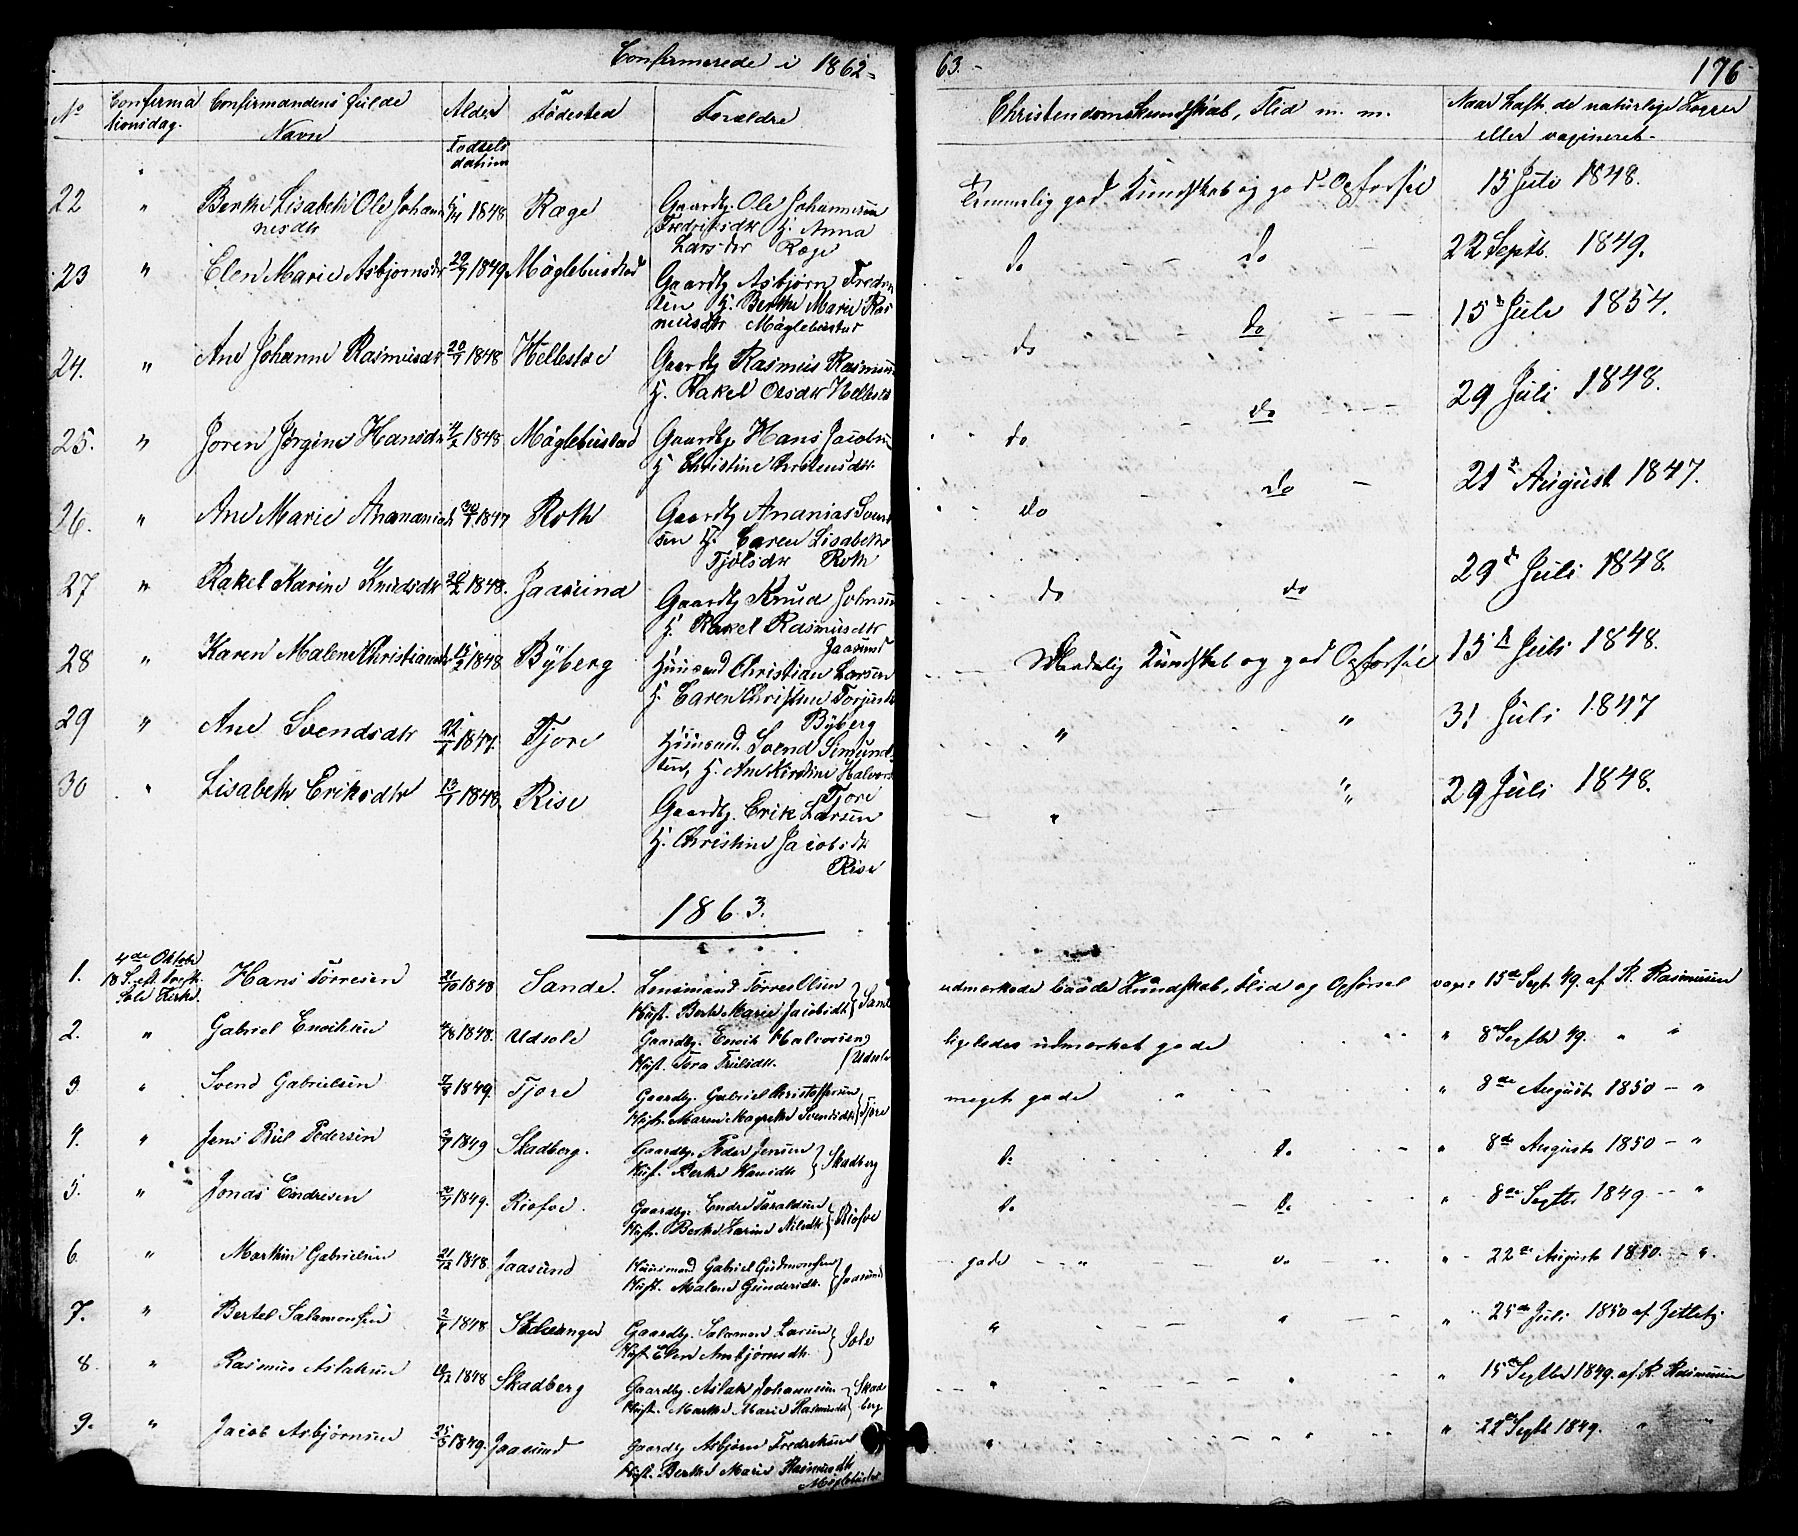 Confirmerede i 1862- 63.- 176
No Confirmationsdag. Confirmandens fulde Navn Alder Fødselsdatum Fødested Forældre Christendomskundskab, Flid m. m. Naar haft de naturlige Kopper eller vaxineret-
22 " Berthe Lisabeth Ole Johannesdtr 1848 Ræge Gaardbr. Ole Johannesen
Fredriksdtr H. Anna
Larsdtr Ræge
Temmelig god Kundskab og god Opførsel 15 Juli 1848.
23 " Elen Marie Asbjørnsdtr 29/7 1849 Møglebustad Gaardbr Asbjørn Fredriksen H. Berthe Marie Rasmusdtr Møglebustad
do do 22 Septb. 1849.
24. " Ane Johanne Rasmusdtr 20/7 1848 Hellestøe Gaardbr Rasmus Rasmussen
H. Rakel Olsdtr Hellestø
do do 15 Juli 1854.
25. " Joren Jørgine Hansdtr 1848 Møglebustad Gaardbr Hans Jacobsen
H. Christine Christensdtr.
do do 29 Juli 1848.
26. " Ane Marie Ananiasdtr 1847 Roth Gaardbr Ananias Svendsen H. Caren Lisabeth
Tjølsdtr Roth
do do 21 August 1847.
27 " Rakel Karine Knudsdtr 1848. Jaasund Gaardbr Knud Johnsen
H. Rakel Rasmusdtr
Jaasund
do do 29 Juli 1848.
28 " Karen Malene Christiansdtr 1848 Byberg Huusmd Christian Larsen
H. Caren Christine Torjusdtr
Byberg
Maadelig Kundskab og god Opførsel 15 Juli 1848.
29 " Ane Svendsdtr 1847. Tjore Huusmd. Svend Simundsen, H. Ane Kirstine Halvors
Tjore
" " 31 Juli 1847
30 " Lisabeth Eriksdtr 13/7 1848 Rise Gaardbr. Erik Larsen
H. Christine Jacobsdtr
Rise
" " 29 Juli 1848.
1863.
1. 4de Oktobr
18 S. eft. Trefk.
Sole Kirke. Hans Tørresen 21/10 1848 Sande. Lensmand Tørres Olsen
Hust. Berthe Marie Jacobsdtr } Sande
udmærkede baade Kundskab, Flid og Opførsel vaxc. 15de Sept 49. af R. Rasmussen
2. " Gabriel Enoksen 4/8 1848. Udsole Gaardbr. Enok Halvorsen
Hust. Tora Trulsdtr. } Udsole
ligeledes udmærket gode " 8de Septbr 49. " "
3 " Svend Gabrielsen 1849. Tjore Gaardbr. Gabriel Christoffersen
Hust. Maren Margrethe Svendsdtr } Tjore
meget gode " " 8de August 1850 - "
4. " Jens Riil Pedersen 1849 Skadberg. Gaardbr. Peder Jensen
Hust. Berthe Hansdtr } Skadberg
Do Do " 8de August 1850 - "
5. " Jonas Endresen 1849. Risfoe. Gaardbr. Endre Taraldsen
Hust. Berthe Karine Nilsdtr } Risfoe
Do Do " 8de Septbr 1849 - "
6. " Marthin Gabrielsen 21/12 1848 Jaasund Huusmand Gabriel Gudmundsen
Hust. Malene Gundersdtr. } Jaasund
gode " do " 22de August 1850. - ".
7. " Bertel Salamonsen 1848 Stavanger Gaardbr. Salamon Larsen
Hust. Elen Asbjørnsdtr. } Sole
" " " 25de Juli 1850 af Zetlitz
8. " Rasmus Aslaksen 1848 Skadberg Gaardbr. Aslak Johannesen
Hust. Marthe Marie Rasmusdtr } Skadberg
" " " 15de Septbr 1849. af R. Rasmussen
9. " Jacob Asbjørnsen 1849. Jaasund Gaardbr Asbjørn Fredriksen
Hust. Berthe Marie Rasmusdtr
Møglebustad
" " " 22de Septb 1849. " "